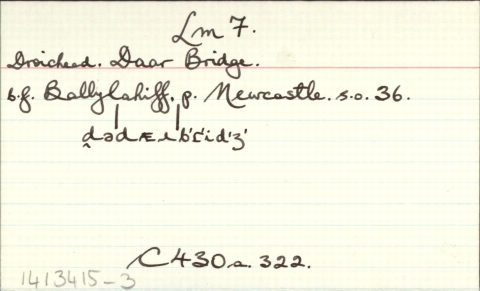 Lm 7.
Droichead. Daar Bridge.
b.f. Ballylahiff. p. Newcastle. s.o. 36.
C430a. 322.
1413415-3